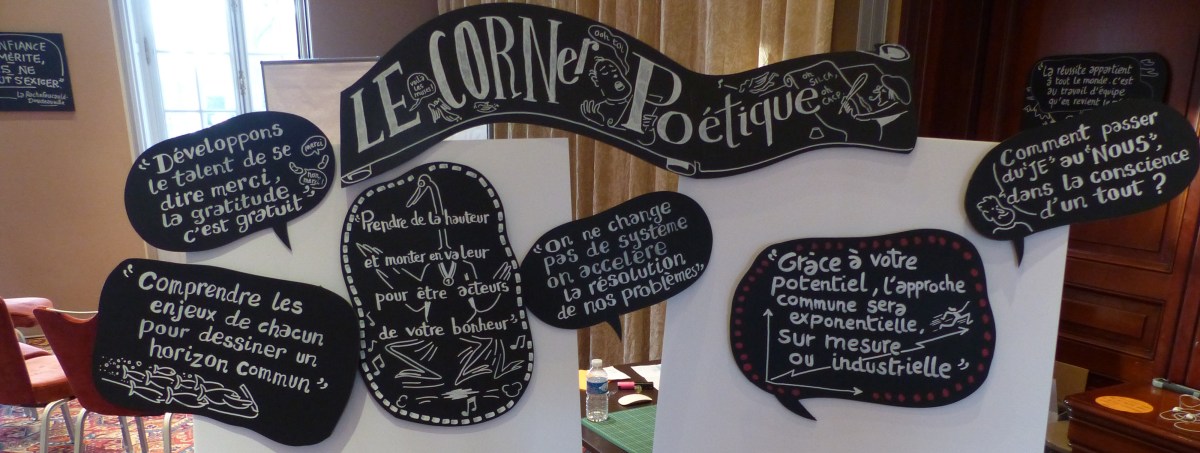 LE CORNer Poétique
NFIANCE
MÉRITE,
NE
T S'EXIGER"
La Rochefoucauld-
"Développons
le talent de se
dire merci,
la gratitude
c'est gratuit"
"Comprendre les
enjeux de chacun
pour dessiner un
horizon commun"
"Prendre de la hauteur
et monter en valeur
pour être acteurs
de votre bonheur"
"On ne change
pas de système
on accelère
la résolution
de nos problèmes"
"Grâce à votre
potentiel, l'approche
commune sera
exponentielle,
sur mesure
ou industrielle"
"La réussite appartient
à tout le monde. c'est
au travail d'équipe
qu'en revient le
Comment passer
du "JE" au "NOUS",
dans la conscience
d'un tout ?